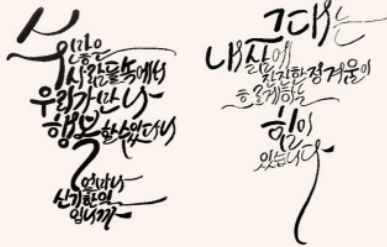 수많은
사람들속에서
우리가만나
행복할수있다니
얼마나
신기한일
입니까
그대는
내삶에
잔잔한정겨움이
흐르게하는
힘이
있습니다